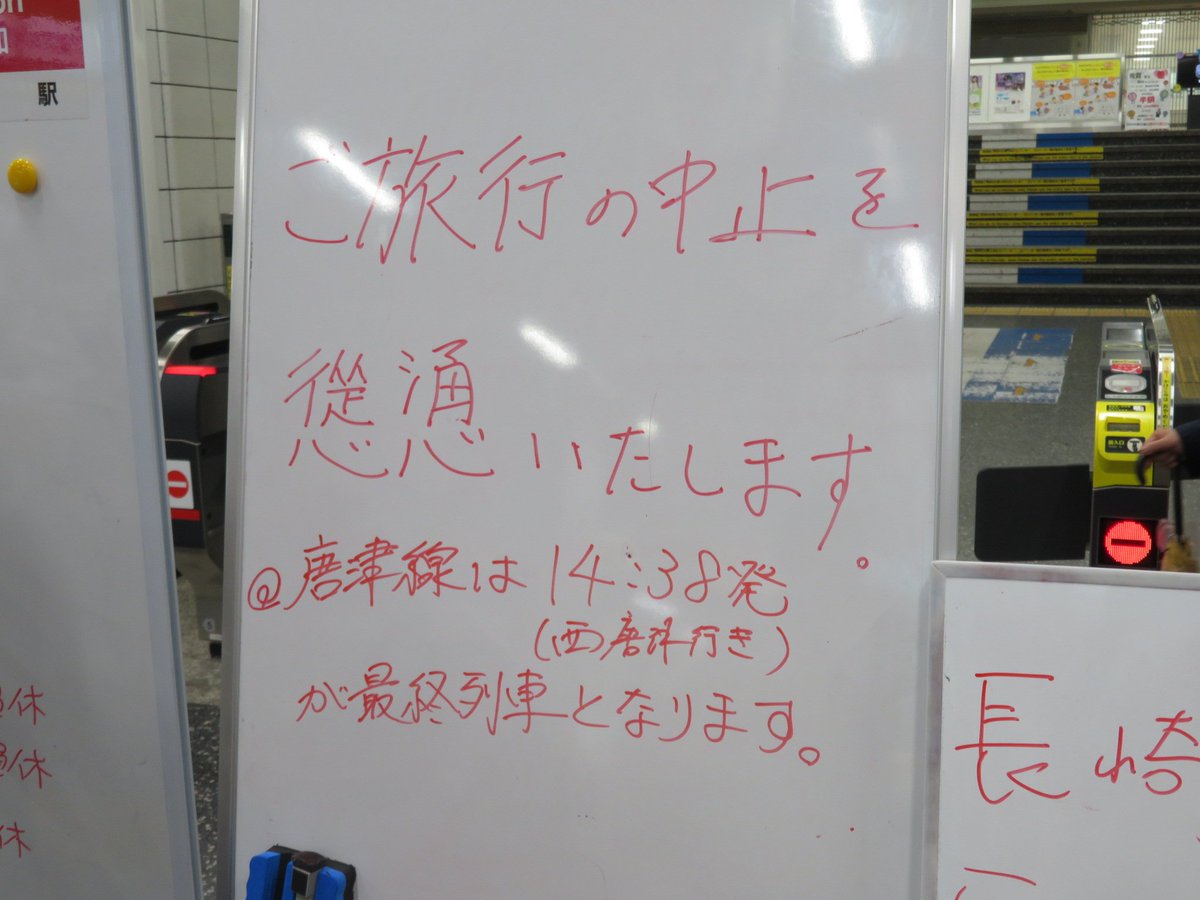 駅
ご旅行の中止を
慫慂いたします。
@唐津線は14:38発
(西唐津行き)
が最終列車となります。
長崎
休
休
休